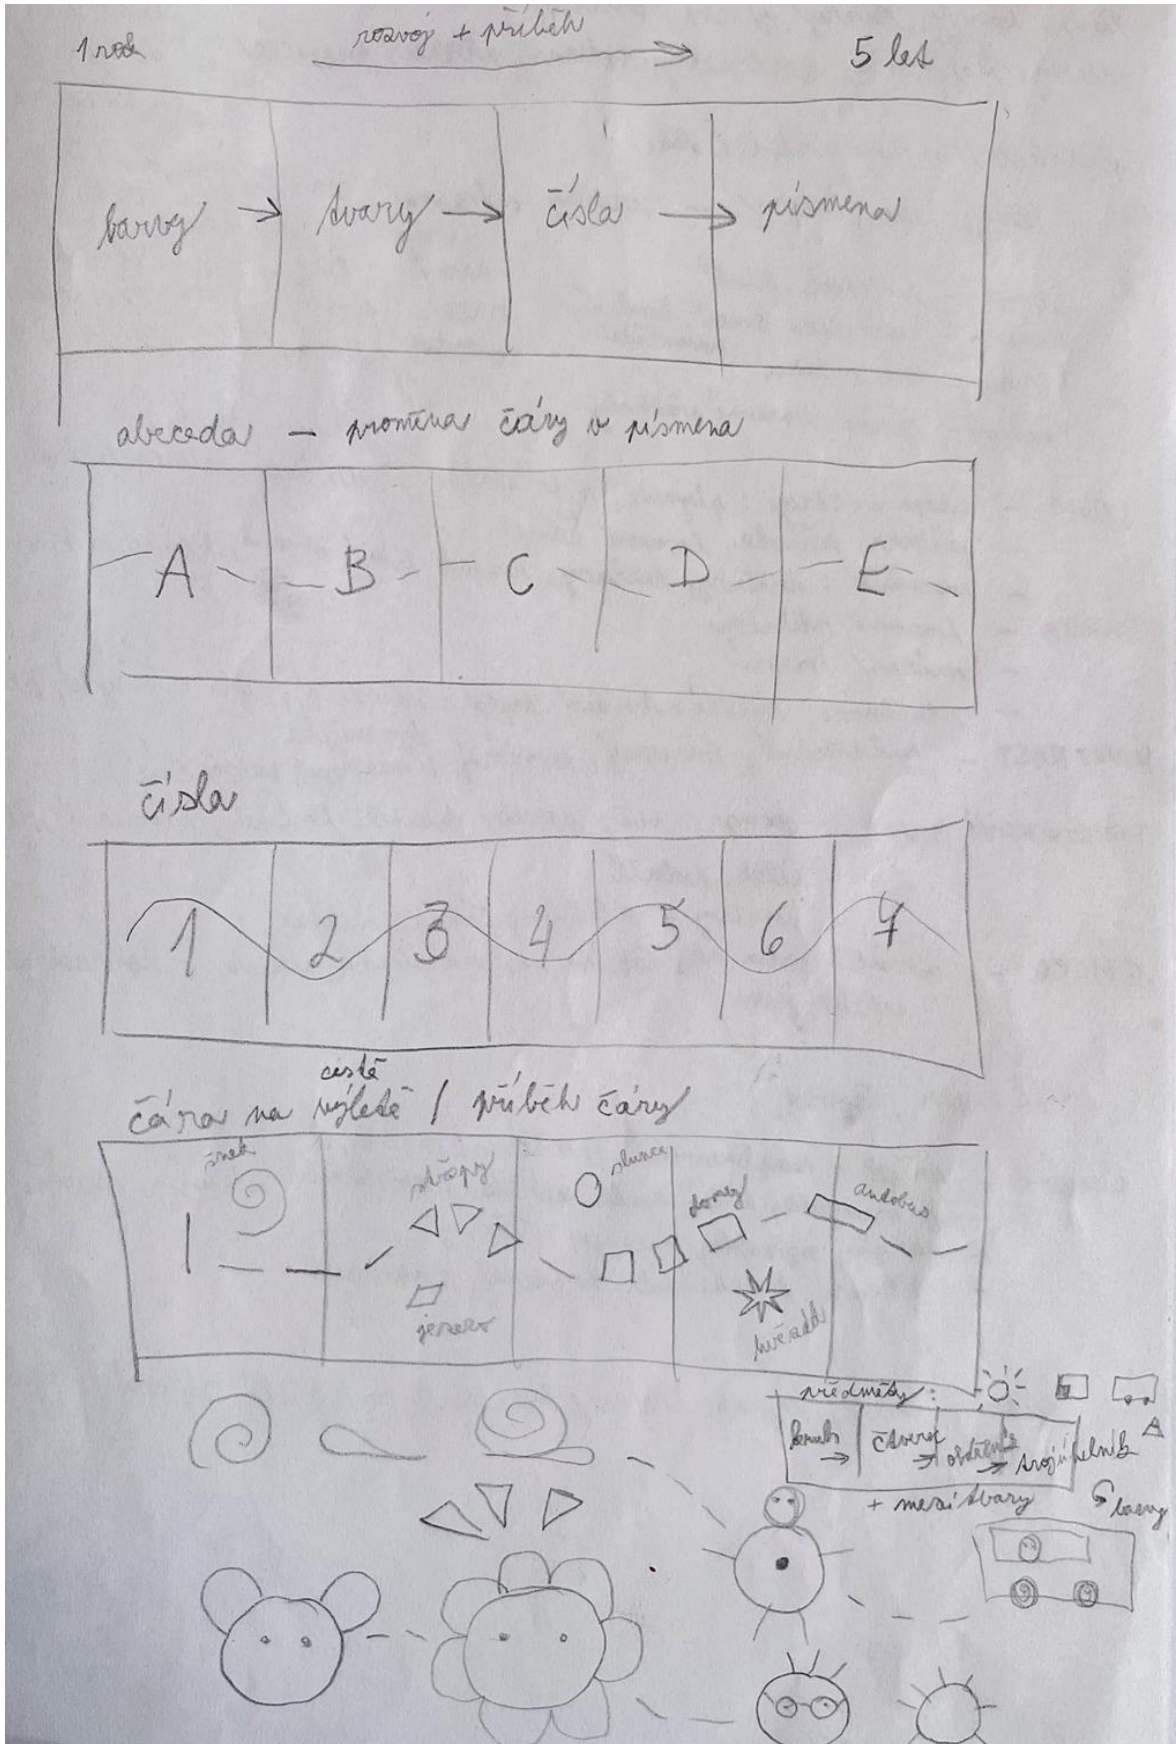 1 rok rozvoj + příběh 5 let
barvy → tvary → čísla → písmena
abeceda – proměna čáry v písmena
A B C D E
čísla
1 2 3 4 5 6 7
cestě
čára na výletě / příběh čáry
šnek stopy slunce domy autobus
jezero hvězda
předměty:
kruh → čtverec → obdélník → trojúhelník
+ mezitvary barvy